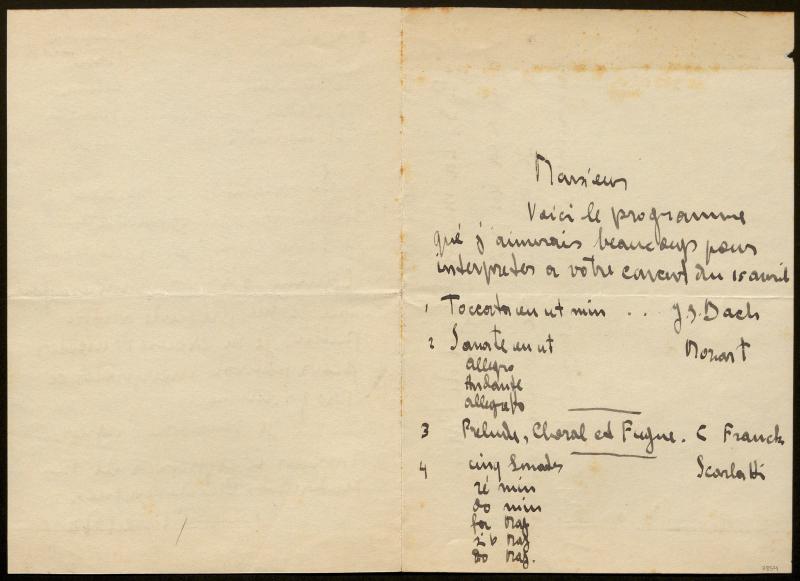 Monsieur
Voici le programme
que j'aimerais beaucoup pour
interpreter a votre concert du 15 avril
1 Toccata en ut min . . . J. S. Bach
2 Sonate en ut Mozart
allegro
Andante
allegreto
3 Prelude, Choral et Fugue. C Franck
4 cinq Sonates Scarlatti
ré min
do min
fa Maj
si b Maj
do Maj.
7854